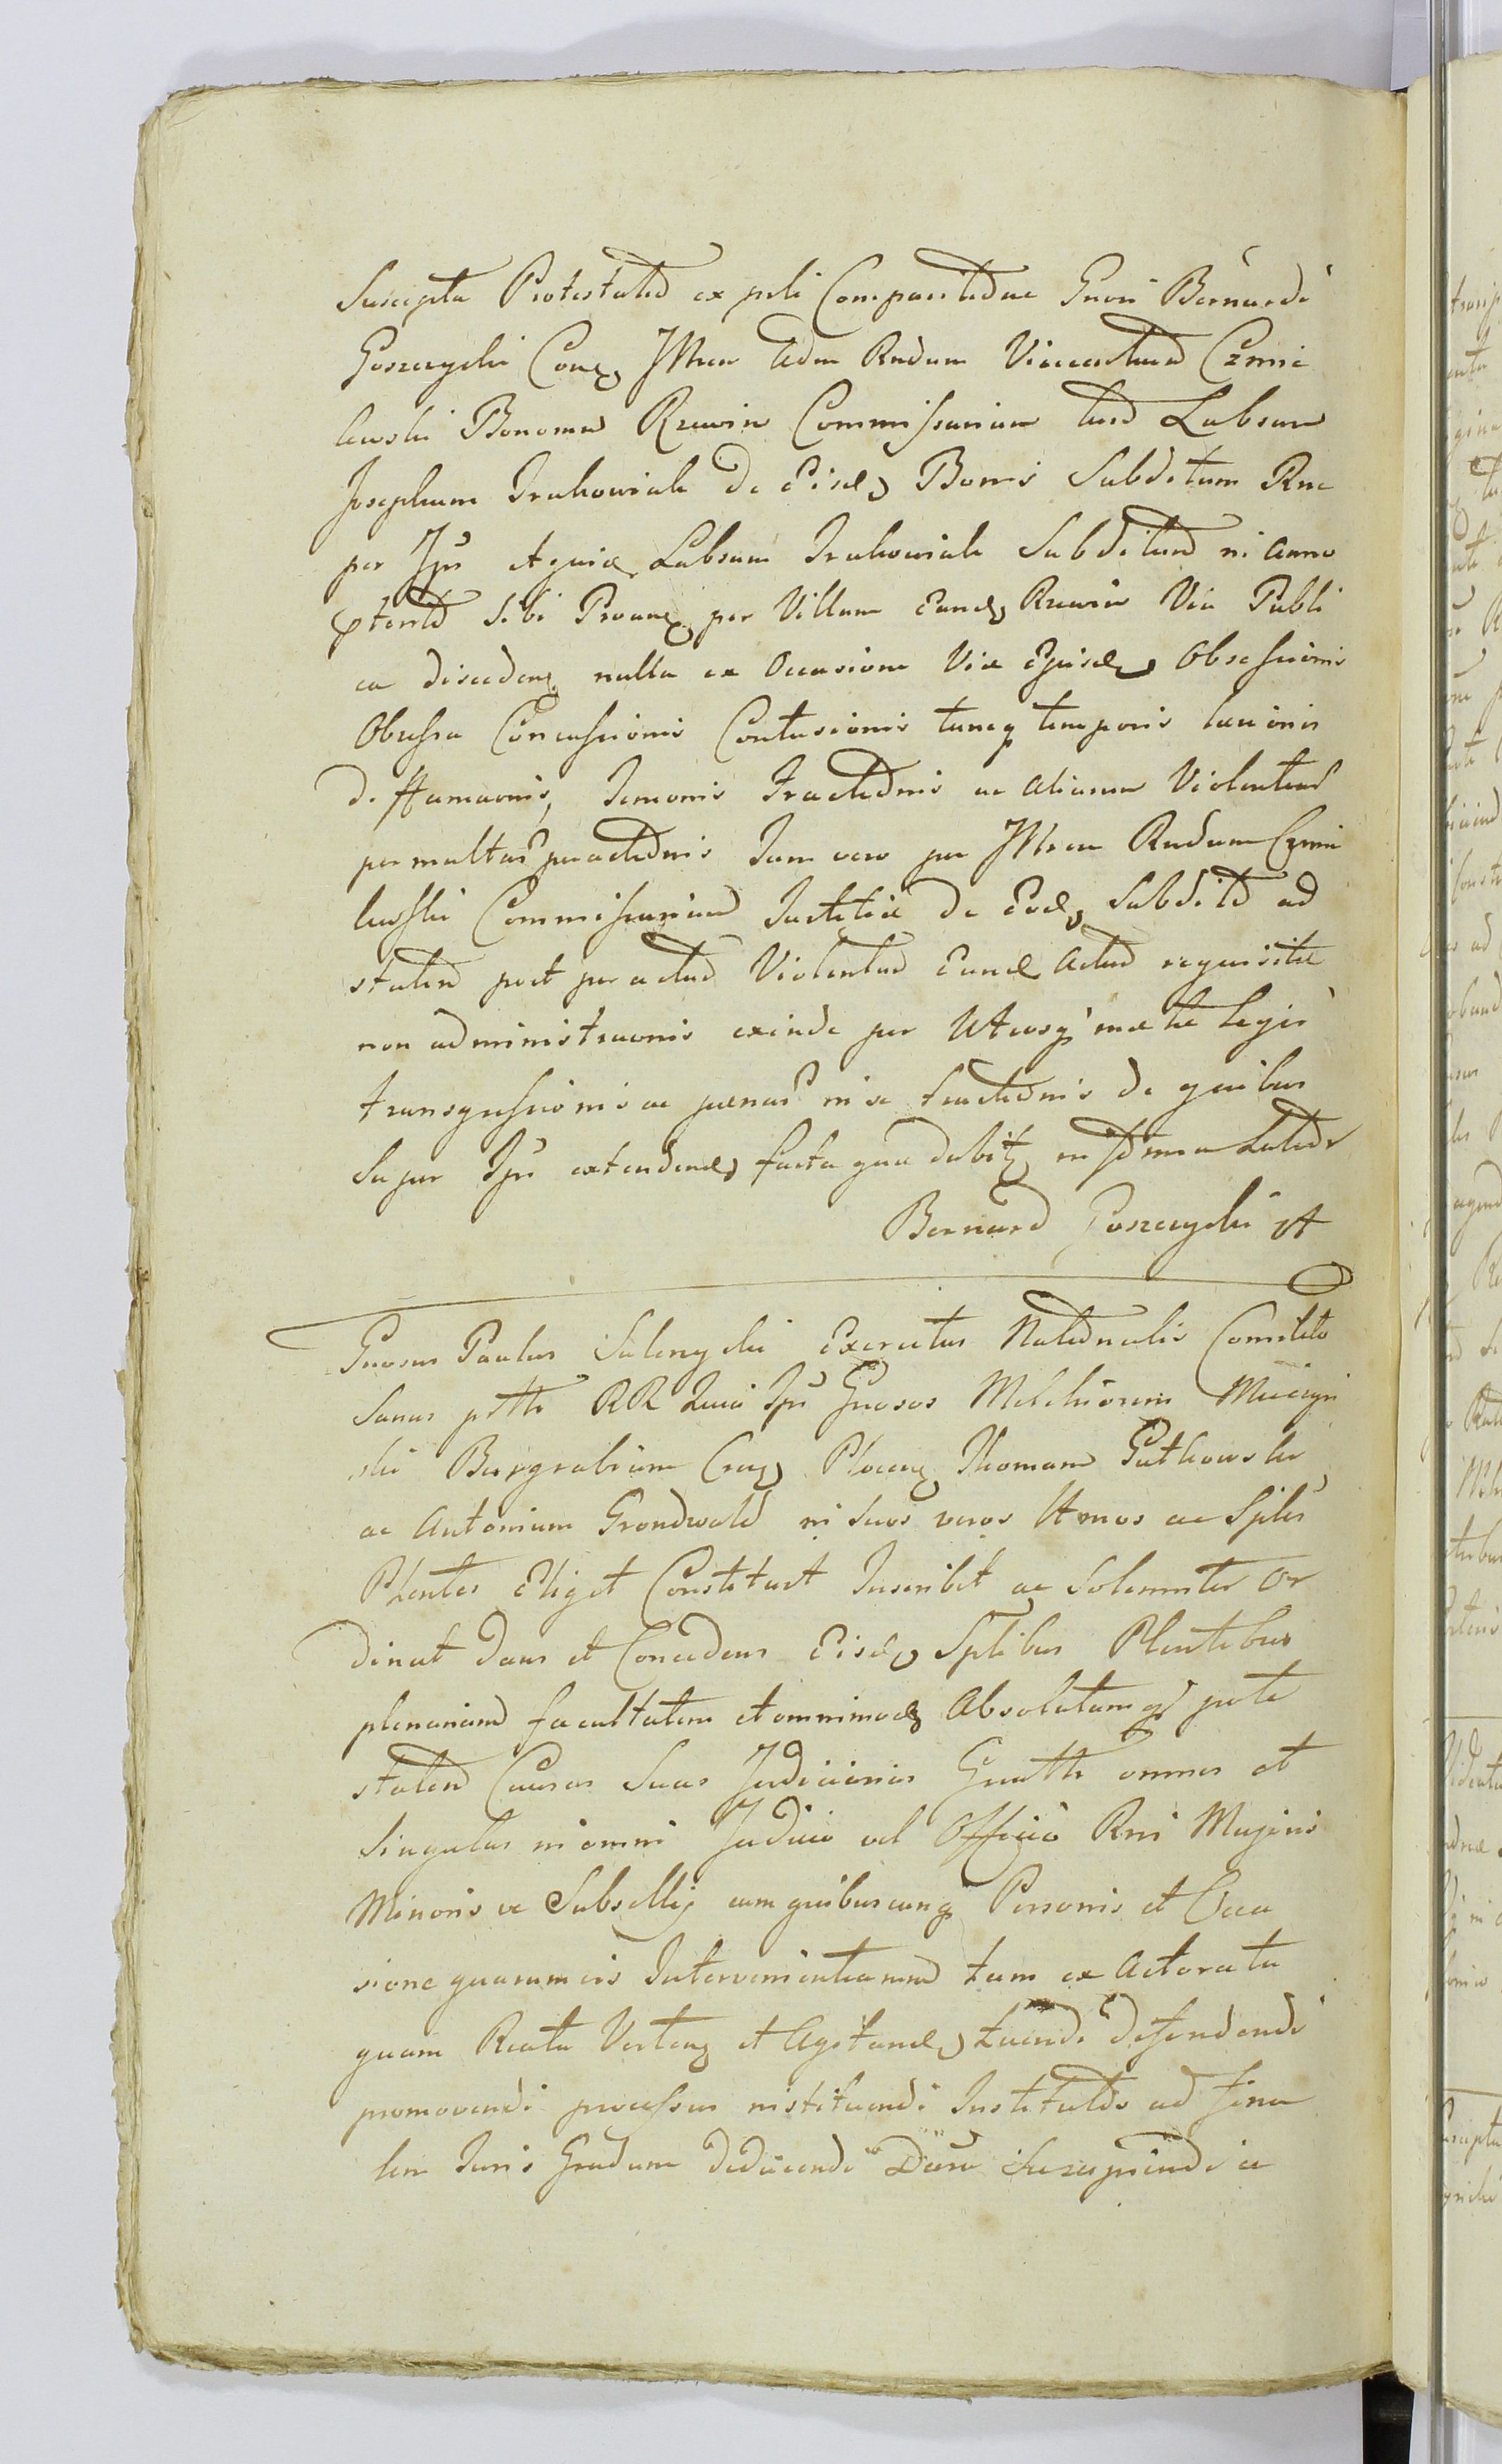 Suscepta Protestatio ex psli Comparitione Gnosi Bernardi
Goszczycki Cona JMcu Adm Rndum Vincentium Czmie
lewski Bonorum Rzewin Commissarium tum Labsum
Josephum Trakowiak de Eisd Bonis Subditum Rne
per Ipsi atqui Labsum Trakowiak Subditum in anno
pterito sibi Proane per Villam Eand Rzewin Via Publi
ca discedens nulla ex Occasione Viæ Ejusd Obsessionis
Obsessa Concussionis Contusionis tunc temporis
diffamaonis, Tractaonis ac aliarum Violentiarum
per multas peractionis Tum vero per JMcu Rndum Czmie
lewski Commissarium Justitiæ de Eod Subdito ad
statim post peractum Violentum Eund Actum requisitæ
non administraonis exinde per Utrosq Legis
transgressionis ac pænas in se tractionis de quibus
super Ipsi extendend facta qua debit in forma Latior
Bernard Goszczycki A
Gnosus Paulus Exercitus Nationalis Comilito
Sanus ptte RR Quia Ipsi Gnosos Melchiorem Mieczyn
ski Burgrabium Cren Plocen Thomam Gutkowski
ac Antonium Grondwald in suos veros ltmos ac Sples
Plentes Eligit Constituit Inscribit ac Solemniter Or
dinat dans et Concedens Eisd Splibus Plentibus
plenariam facultatem et omnimod Absolutamq pote
statem Causas Suas Judiciarias Gnatte omnes et
Singulas in omni Judicio vel Officio Rni Majoris
Minoris ve Subsellij cum quibuscunq Personis et Occa
sione quarumvis Intervenientiarum tam ex Actoratu
quam Reatu Verten et Agitand tuendi defendendi
promovendi processus instituendi Institutos ad fina
lem Juris Gradum deducendi Suscipiendi ac